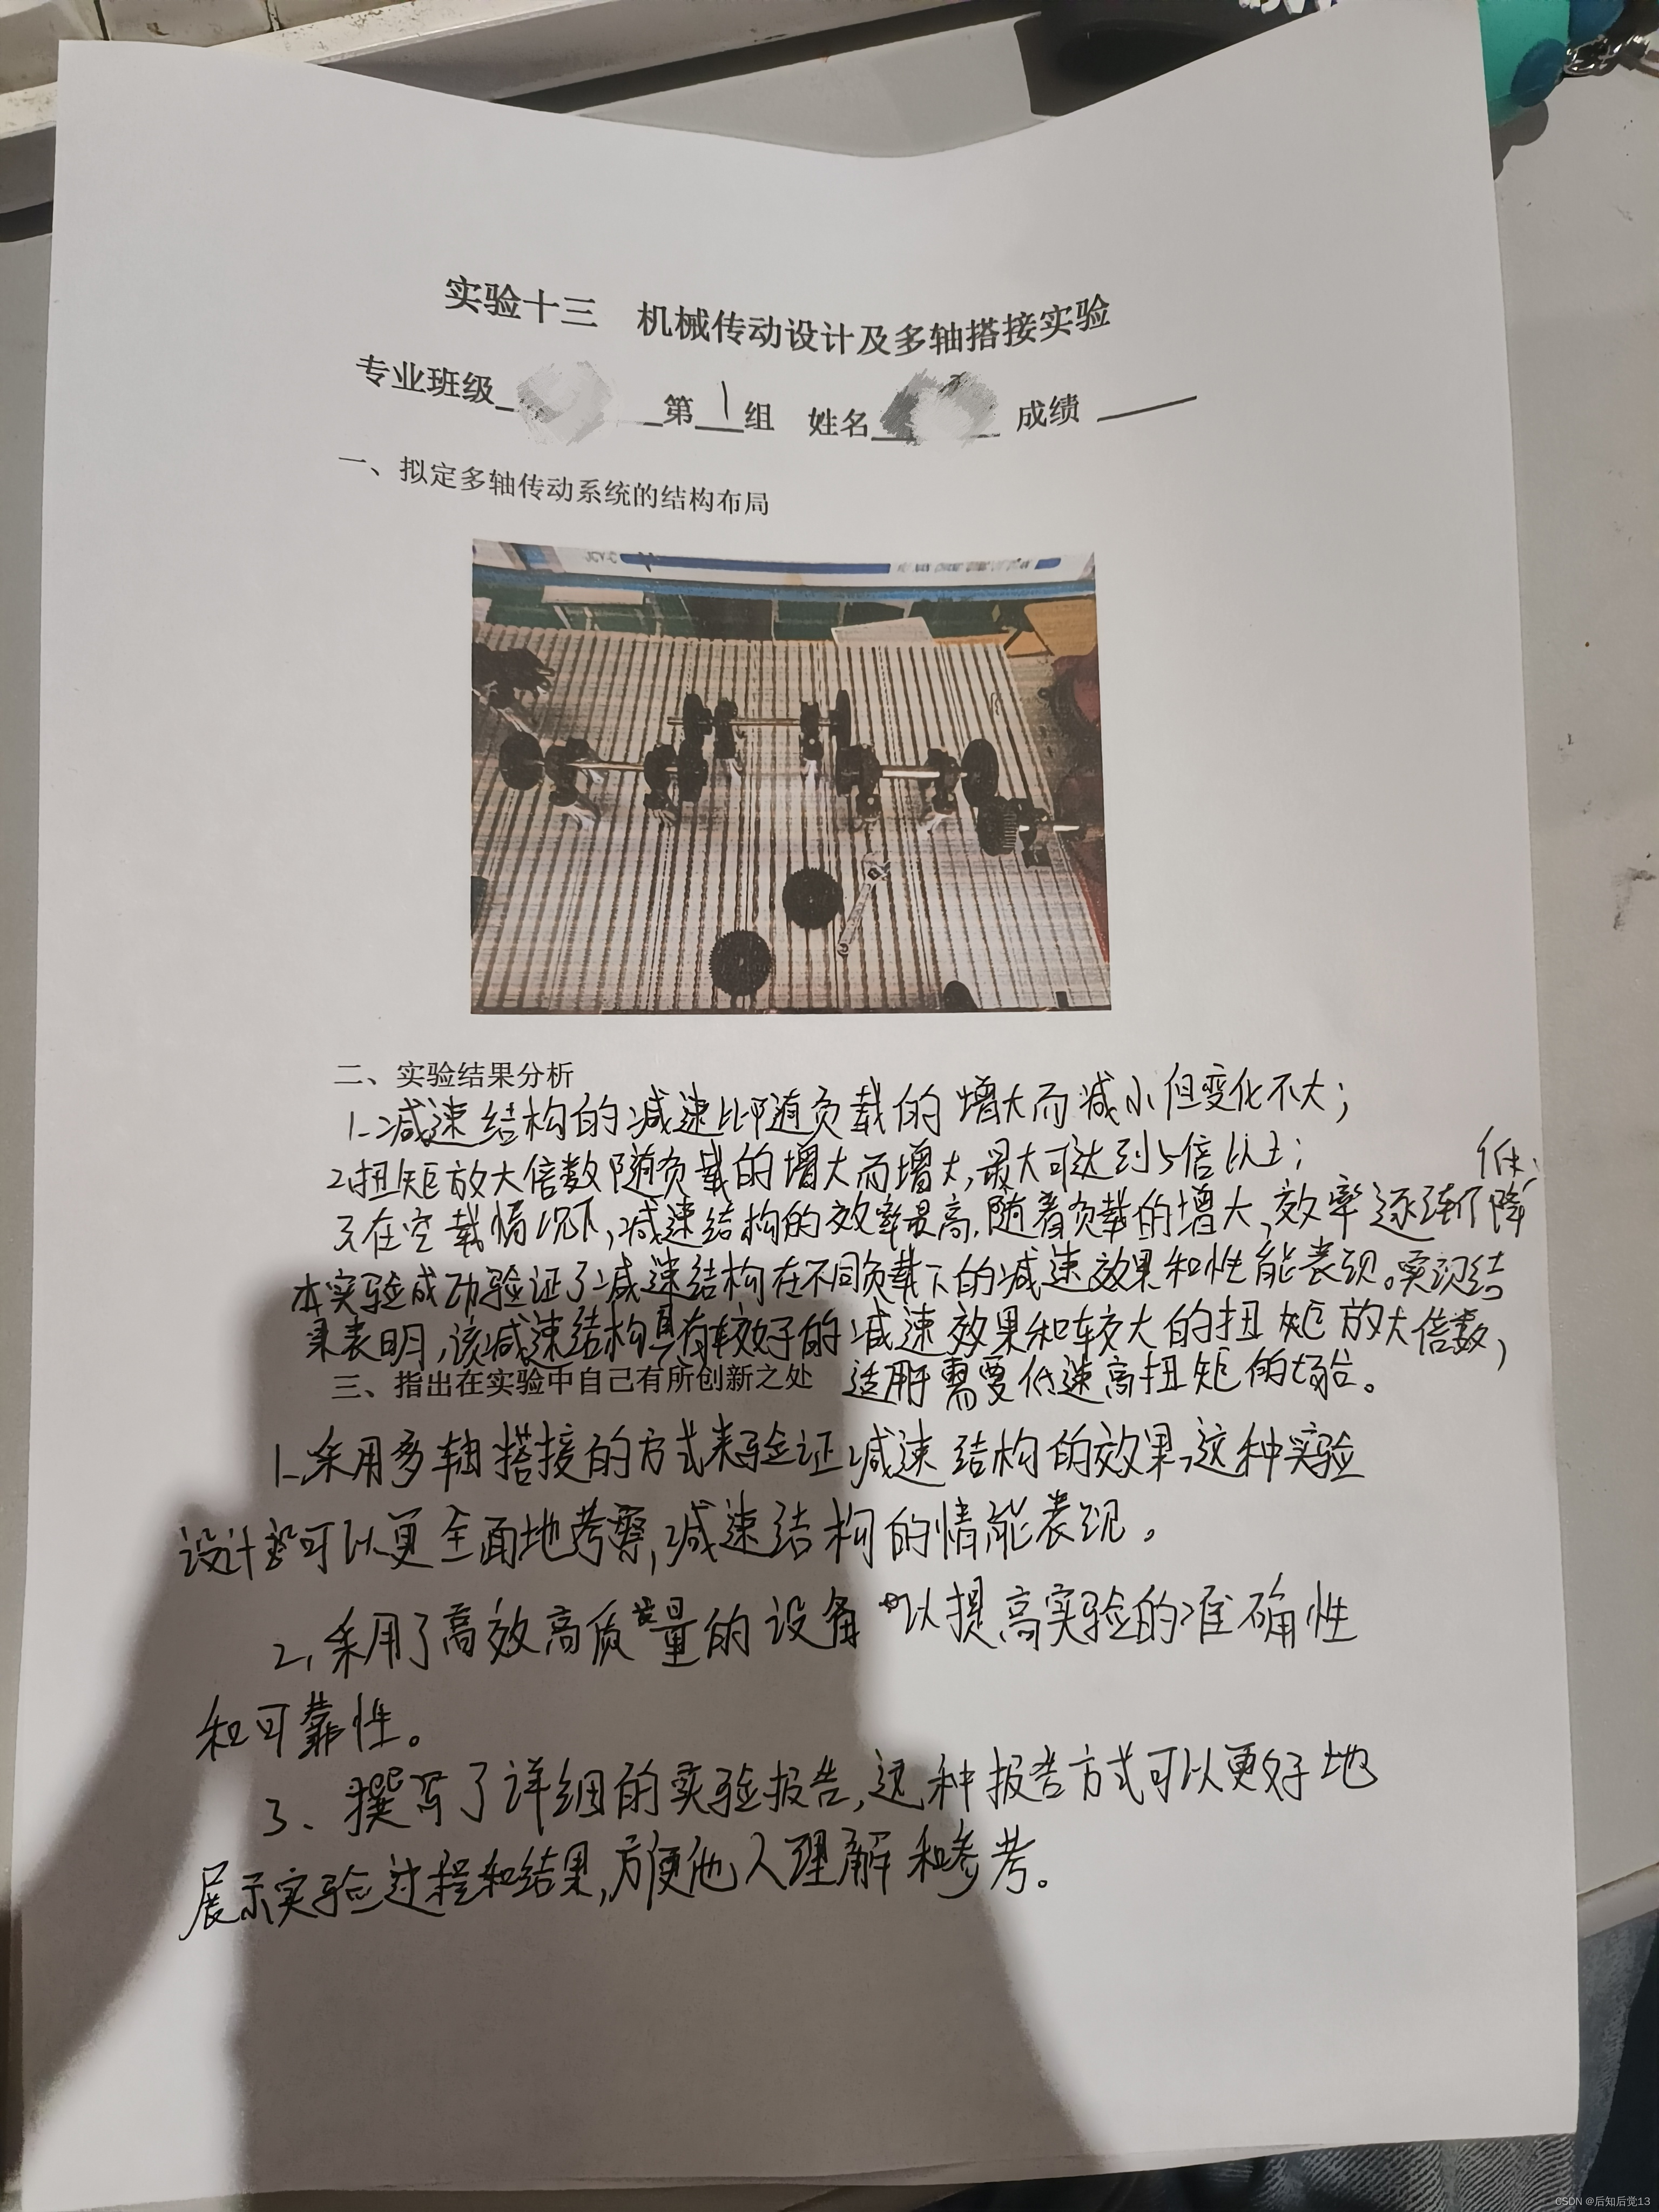 实验十三 机械传动设计及多轴搭接实验
专业班级 第1组 姓名 成绩
一、拟定多轴传动系统的结构布局
二、实验结果分析
1.减速结构的减速比随负载的增大而减小但变化不大;
2.扭矩放大倍数随负载的增大而增大,最大可达到5倍以上;
3.在空载情况下,减速结构的效率最高,随着负载的增大,效率逐渐下降低;
本实验成功验证了减速结构在不同负载下的减速效果和性能表现。实现结
果表明,该减速结构具有较好的减速效果和较大的扭矩放大倍数,
适用于需要低速高扭矩的场合。
三、指出在实验中自己有所创新之处
1.采用多轴搭接的方式来验证减速结构的效果,这种实验
设计可以更全面地考察,减速结构的情能表现。
2.采用了高效高质量的设备 以提高实验的准确性
和可靠性。
3、撰写了详细的实验报告,这种报告方式可以更好地
展示实验过程和结果,方便他人理解和参考。
CSDN @后知后觉13